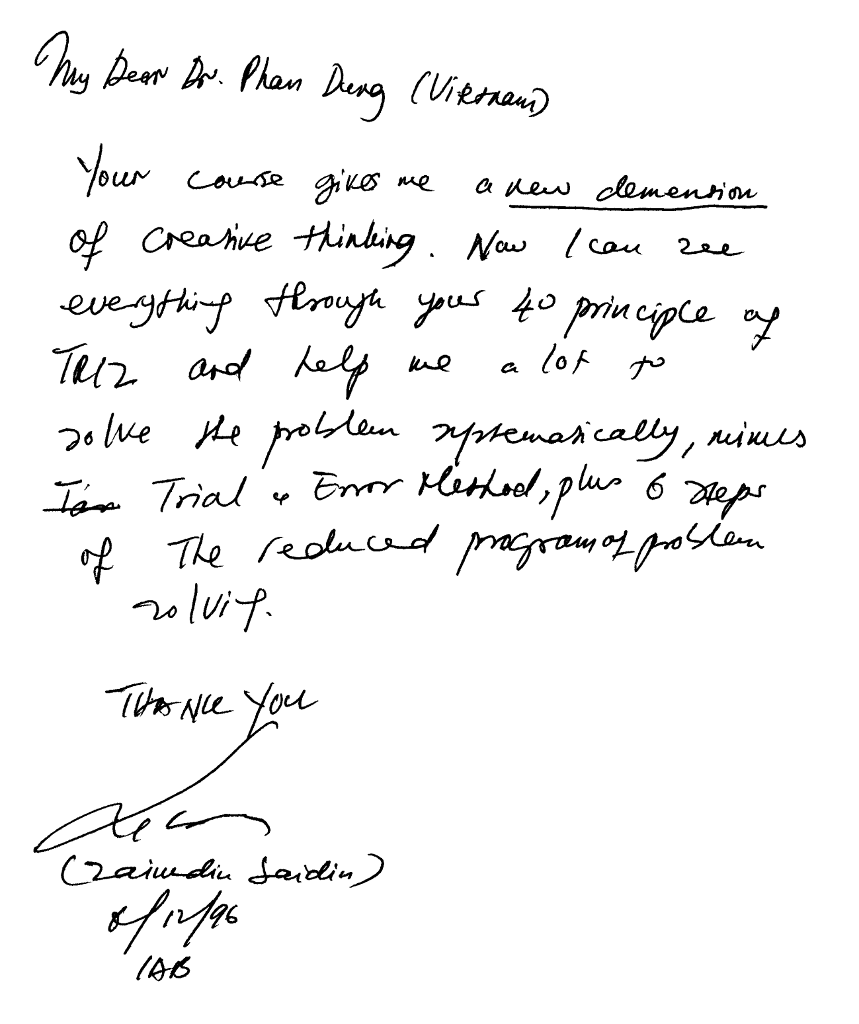 My Dear Dr. Phan Dung (Vietnam)
Your course gives me a new demension
of creative thinking. Now I can see
everything through your 40 principle of
TRIZ and help me a lot to
solve the problem systematically, minus
Trial & Error Method, plus 6 steps
of The reduced program of problem
solving.
THANK YOU
(Zainudin Saidin)
/12/96
IAB